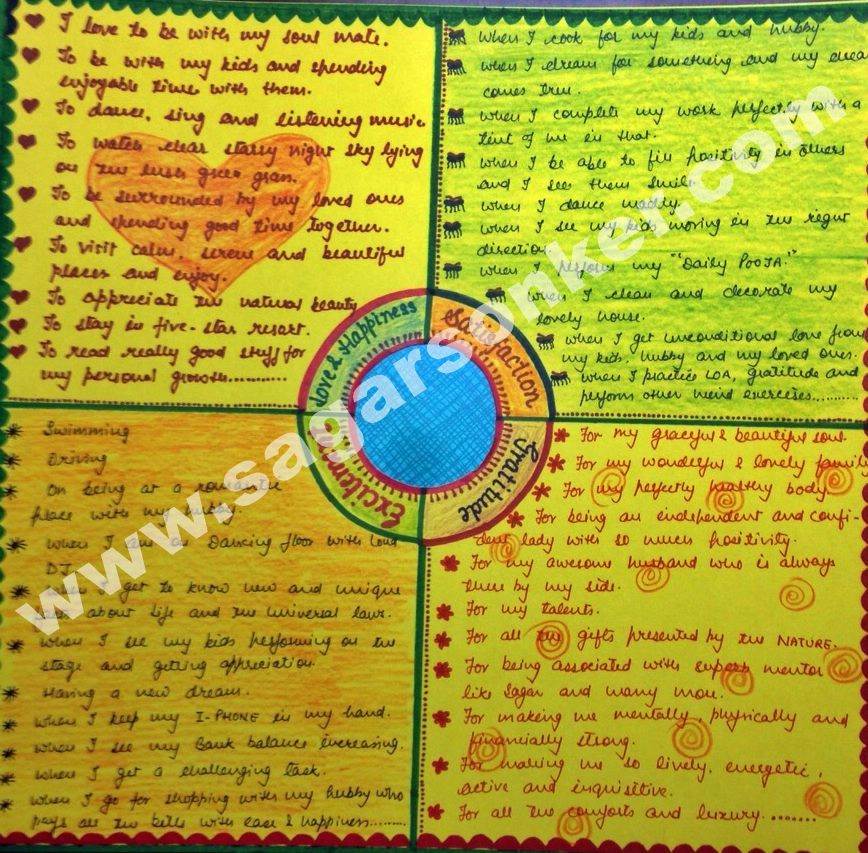 I love to be with my soul mate.
To be with my kids and spending
enjoyable time with them.
To dance, sing and listening music
To watch clear starry night sky lying
on the lush green grass.
To be surrounded by my loved ones
and spending good time together.
To visit calm, serene and beautiful
places and enjoy.
To appreciate the natural beauty
To stay in five-star resort.
To read really good stuff for
my personal growth...........
when I cook for my kids and hubby.
when I dream for something and my dream
comes true.
when I complete my work perfectly with a
tint of me in that.
when I be able to fill positivity in others
and I see them smile.
when I dance madly.
when I see my kids moving in the right
direction
when I perform my "Daily POOJA."
when I clean and decorate my
lovely house.
when I get unconditional love from
my kids, hubby and my loved ones.
when I practice LOA, gratitude and
perform other weird exercises.........
Love & Happiness
Satisfaction
Excitement
Gratitude
Swimming
Driving
On being at a romantic
place with my hubby.
when I am on Dancing floor with loud
DJ.
when I get to know new and unique
about life and the universal laws.
when I see my kids performing on the
stage and getting appreciation.
Having a new dream.
when I keep my I-PHONE in my hand.
when I see my Bank balance increasing.
when I get a challenging task.
when I go for shopping with my hubby who
pays all the bills with ease & happiness.........
For my graceful & beautiful soul.
For my wonderful & lovely family
For my perfectly healthy body
For being an independent and confi-
dent lady with so much positivity.
For my awesome husband who is always
there by my side.
For my talents.
For all the gifts presented by the NATURE.
For being associated with superb mentor
like Sagar and many more.
For making me mentally, physically and
financially strong.
For making me so lively, energetic,
active and inquisitive.
For all the comforts and luxury........
www.sagarsonker.com